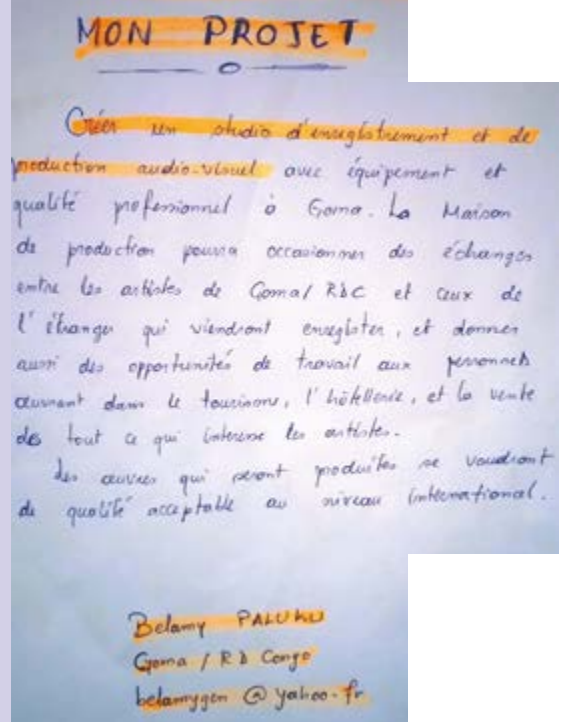 MON PROJET
Créer un studio d'enregistrement et de
production audio-visuel avec équipement et
qualité professionnel à Goma. La Maison
de production pourra occasionner des échanges
entre les artistes de Goma/ RDC et ceux de
l'étranger qui viendront enregistrer, et donner
aussi des opportunités de travail aux personnels
œuvrant dans le tourisme, l'hôtellerie, et la vente
des tout ce qui intéresse les artistes.
Les œuvres qui seront produites se voudront
de qualité acceptable au niveau international.
Belamy PALUKU
Goma / RD Congo
belamygen @ yahoo.fr